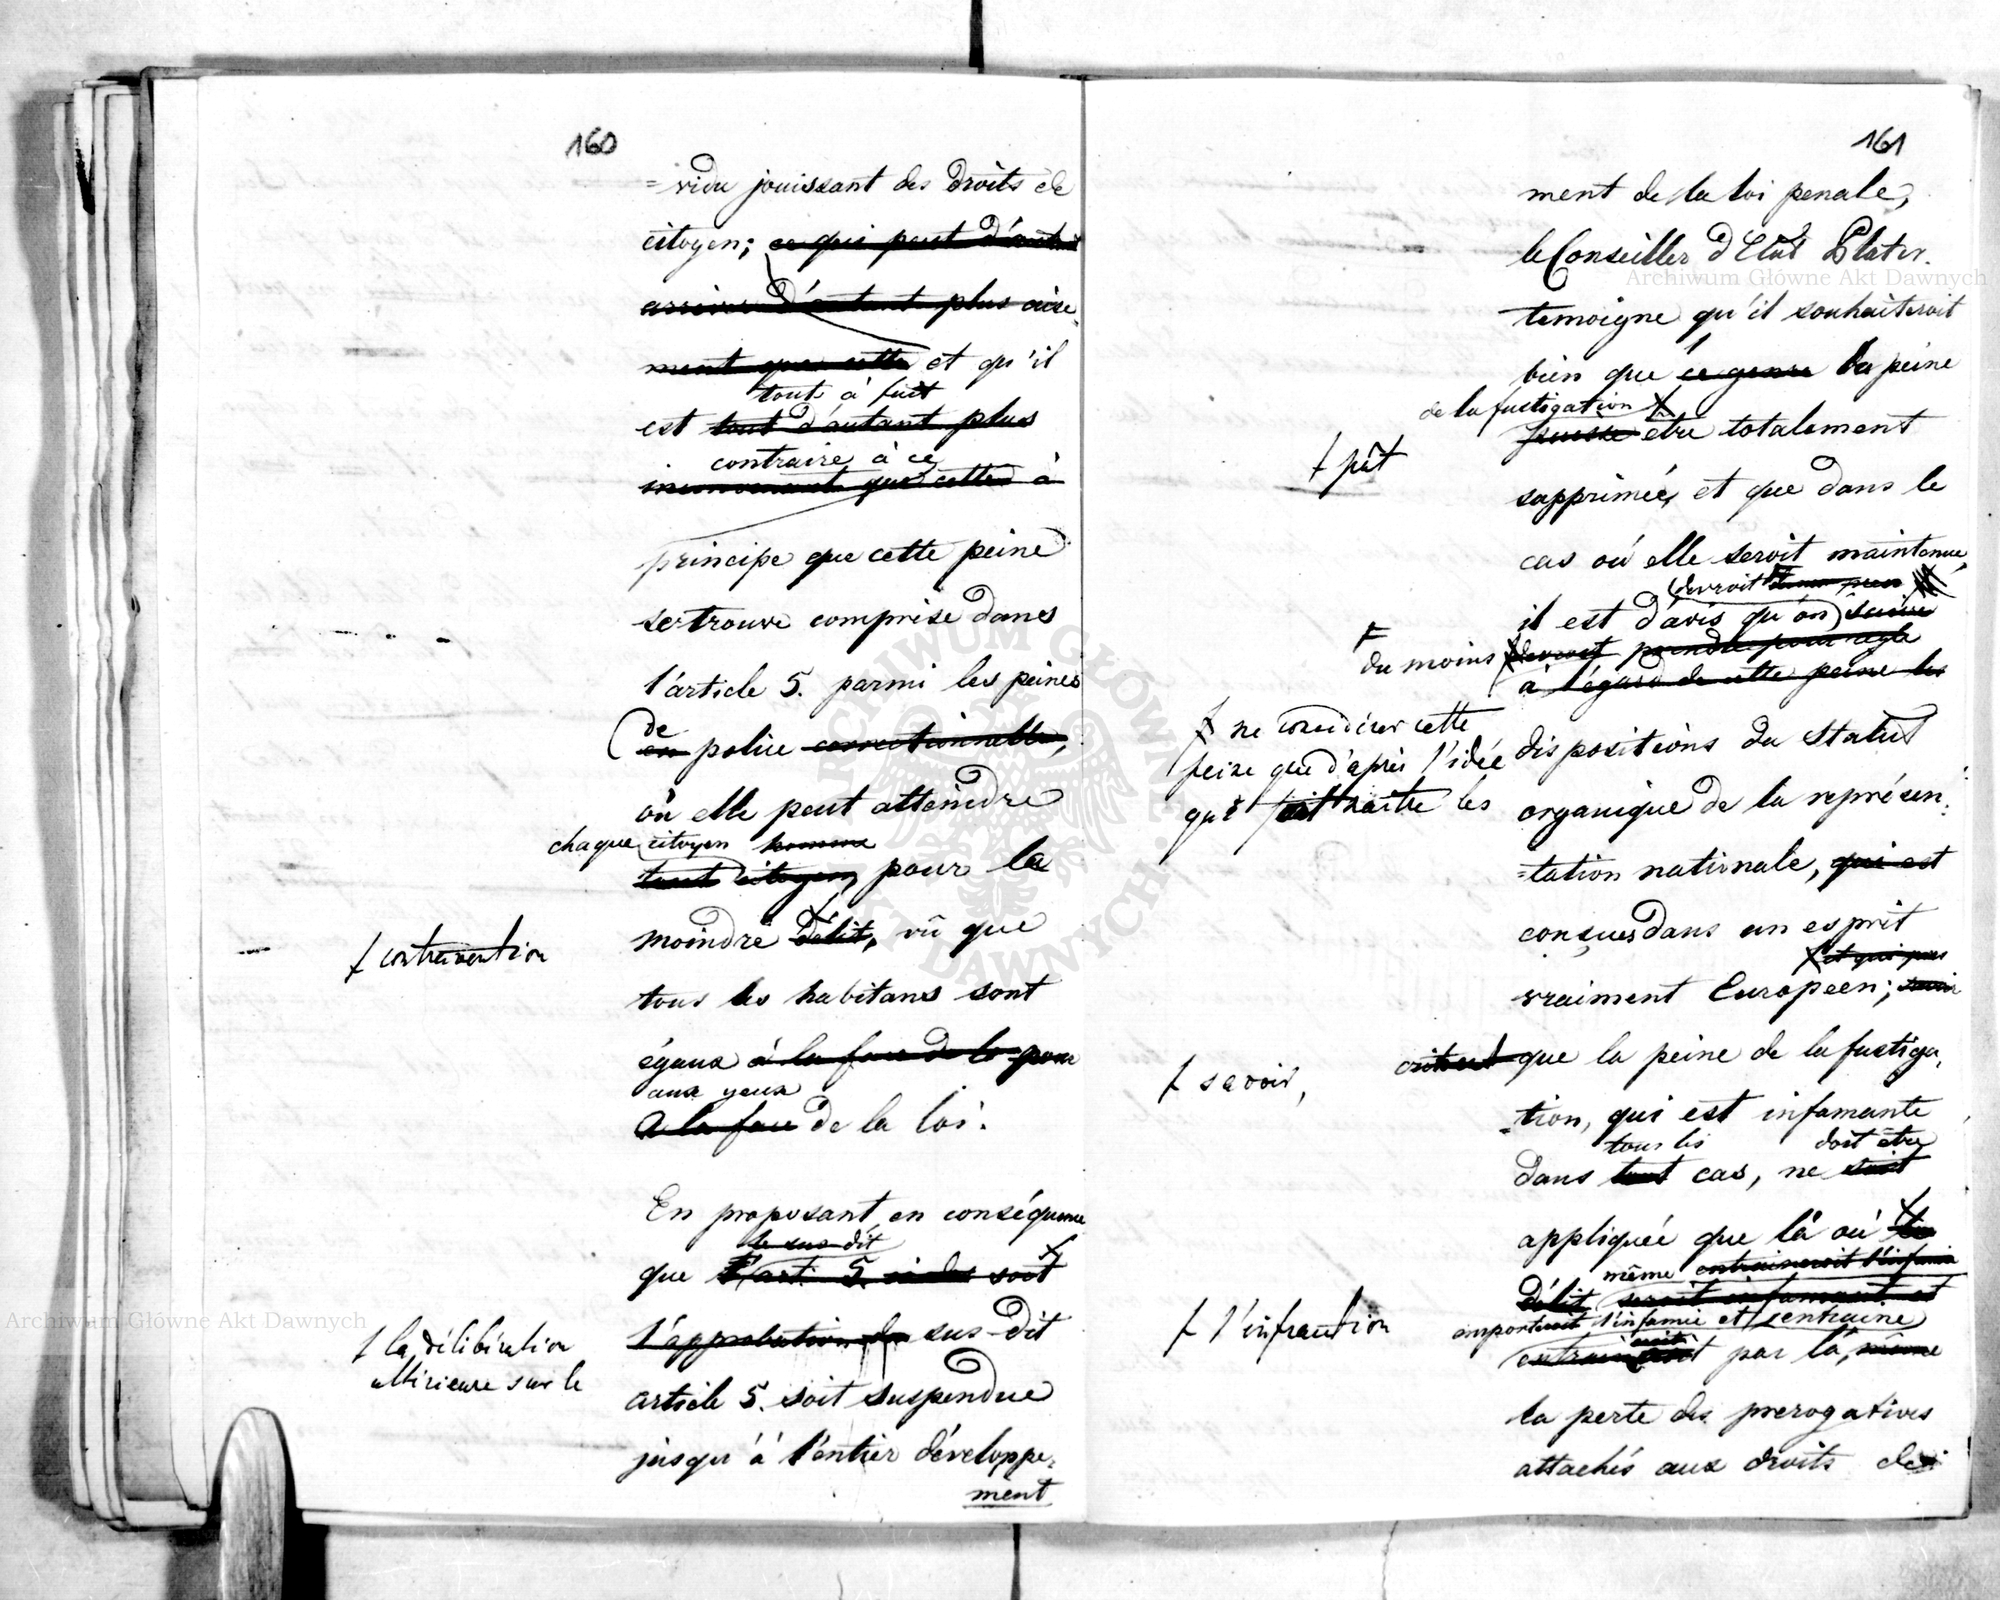 160
= vidu jouissant des droits de
citoyen; ce qui peut d'autant
arriver d'autant plus aisé
ment que cette et qu'il
tout à fait
est tout d'autant plus
contraire à ce
inconvenant que cette à
principe que cette peine
se trouve comprise dans
l'article 5. parmi les peines
de
en police correctionnelle,
où elle peut atteindre
chaque citoyen homme
tout citoyen pour la
moindre délit, vû que
ƒ contravention
tous les habitans sont
égaux à la face de la pour
aux yeux
à la face de la loi.
En proposant en conséquence
le sus-dit
que l'art. 5. soit
l'approbation du sus-dit
ƒ la délibération
ultérieure sur le
article 5. soit suspendue
jusqu'à l'entier développe,
ment
161
ment de la loi penale,
le Conseiller d'Etat Plater.
temoigne qu'il souhaiteroit
bien que ce genre la peine
de la fustigation
puisse être totalement
ƒ pût
supprimée, et que dans le
cas où elle seroit maintenue,
devroit
il est d'avis qu'on suivre
du moins devroit prendre pour regle
à l'égard de cette peine les
ƒ ne considérer cette
peine que d'après l'idée
qu'e fait naître les
dispositions du Statut
organique de la représen,
=tation nationale, qui est
conçues dans un esprit
et qui
vraiment Europeen; savoir
que la peine de la fustiga,
ƒ savoir,
=tion, qui est infamante
tous les doit être
dans tout cas, ne soit
appliquée que là où le
même entraineroit l'infamie
délit seroit infamant et
ƒ l'infraction
emporteroit l'infamie et entraine
par là, même
la perte des prerogatives
attachés aux droits de
Archiwum Główne Akt Dawnych
Archiwum Główne Akt Dawnych
ARCHIWUM GŁÓWNE AKT DAWNYCH